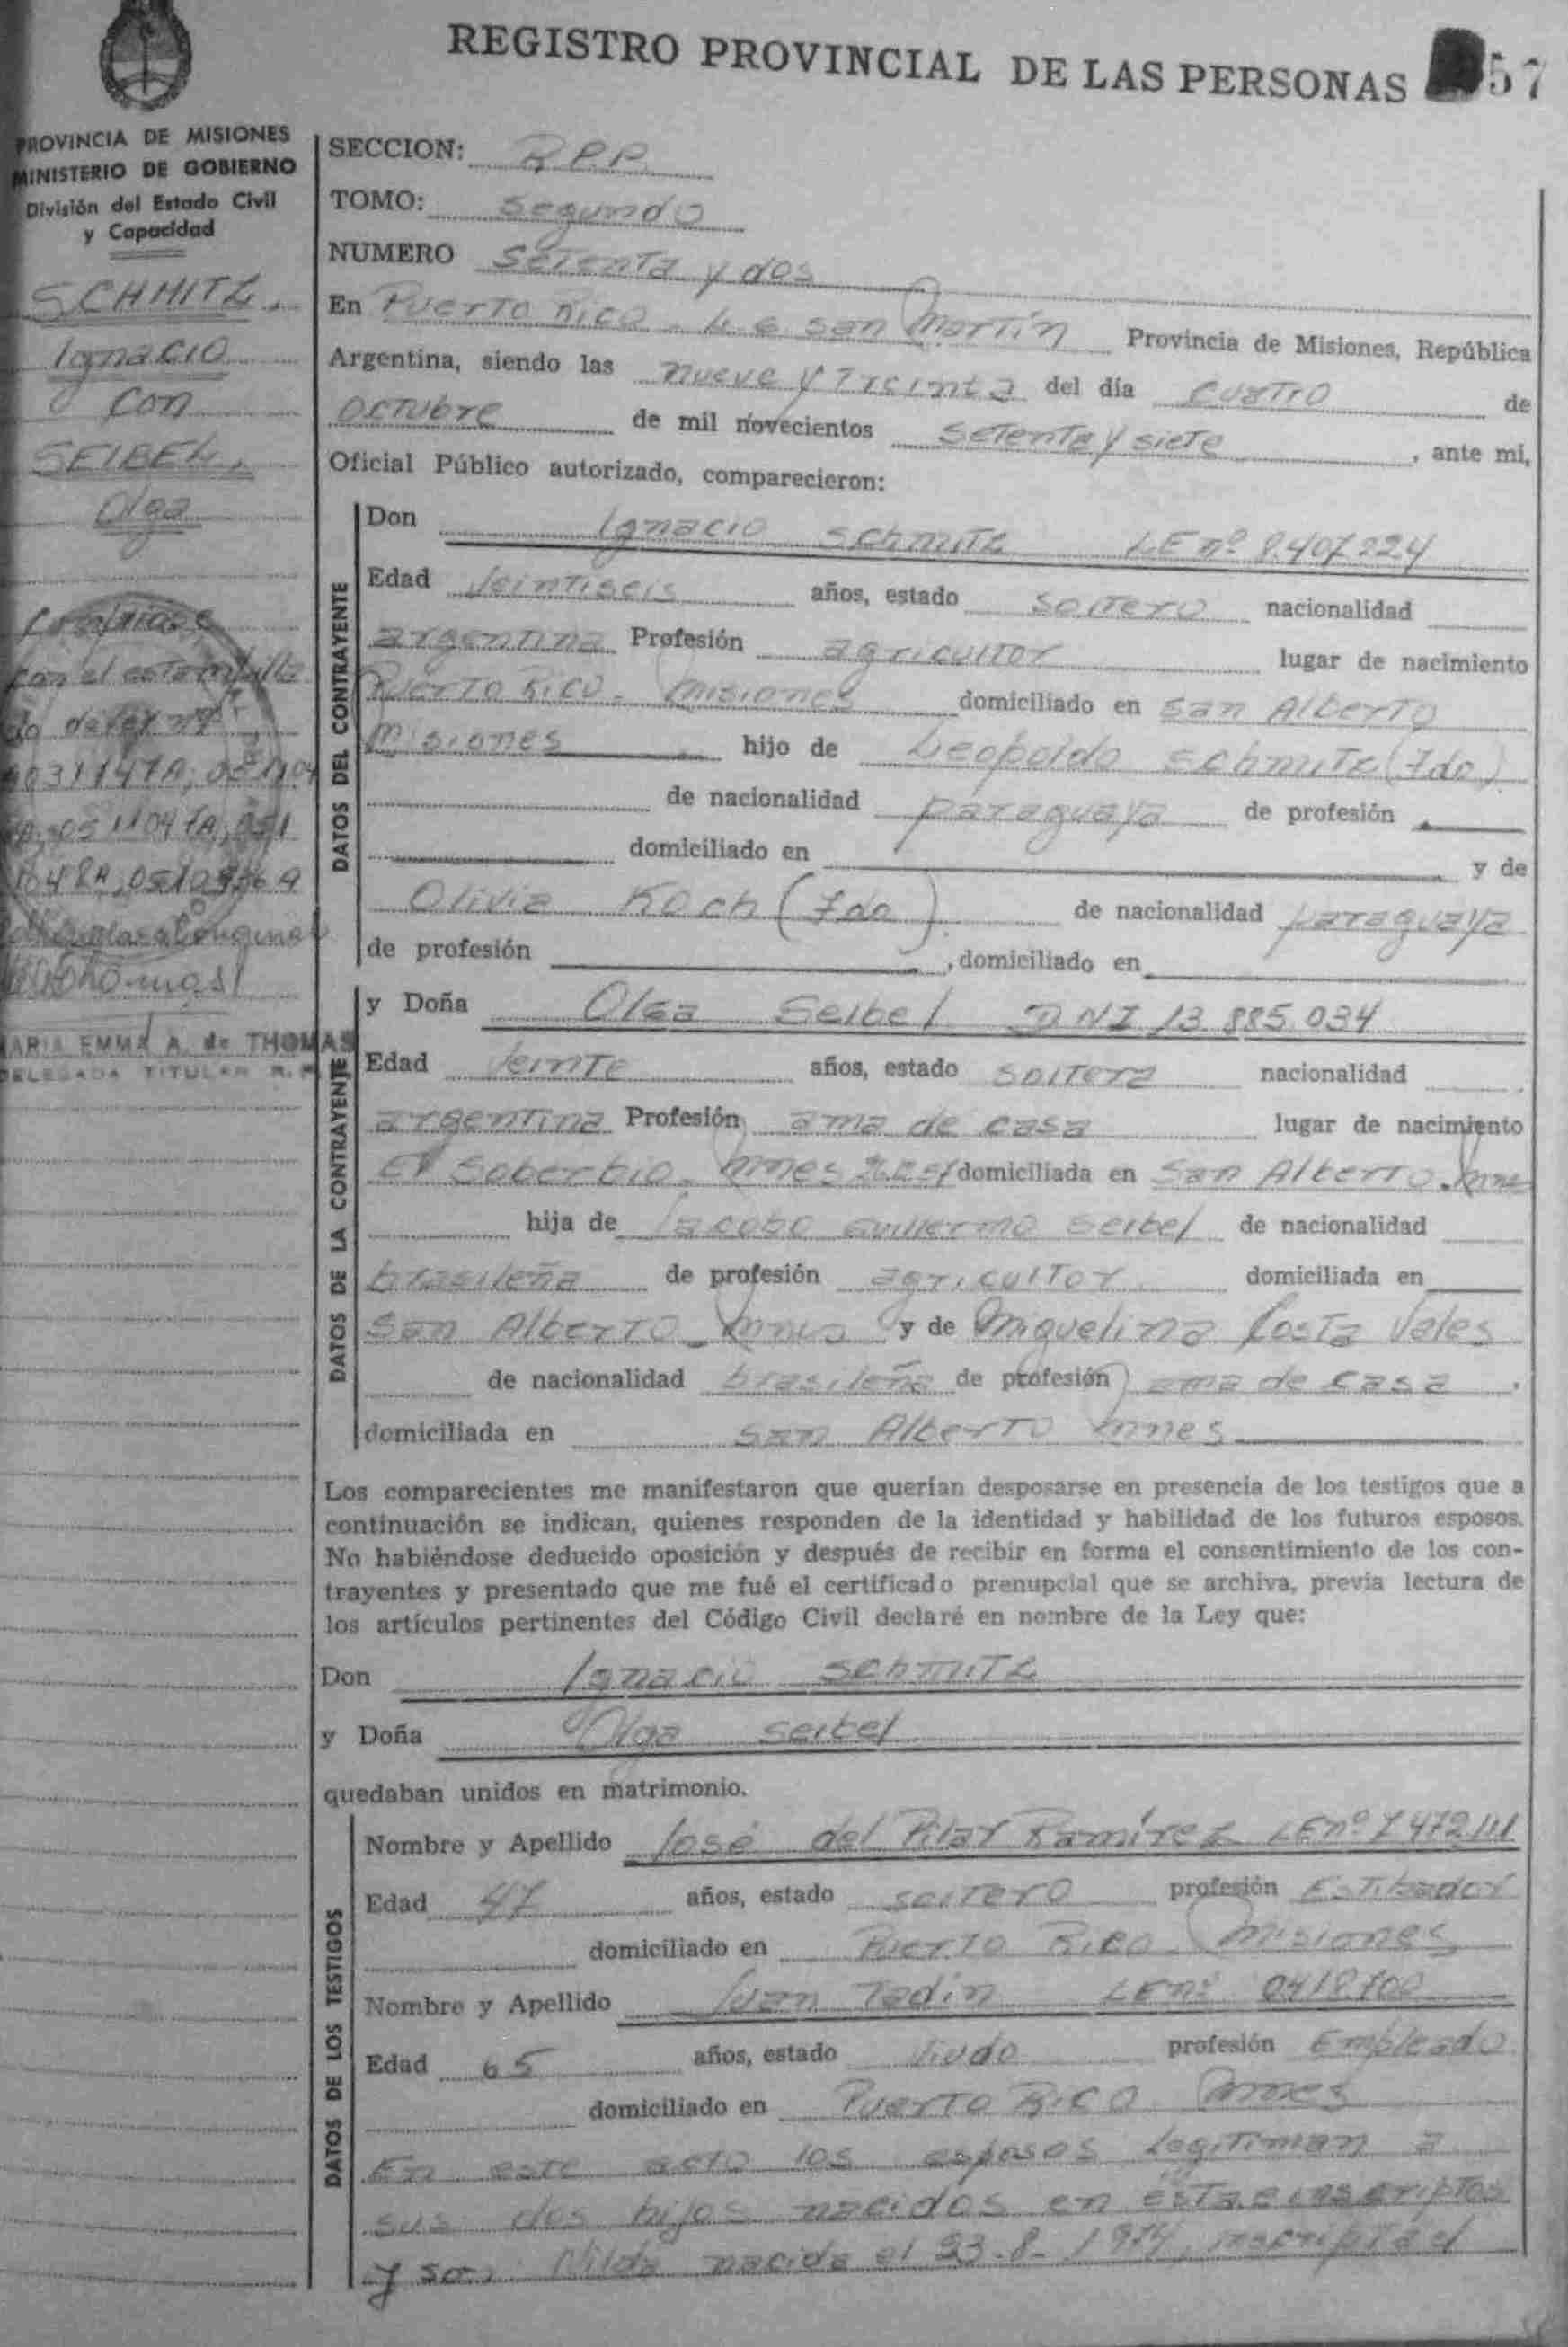 REGISTRO PROVINCIAL DE LAS PERSONAS 57
PROVINCIA DE MISIONES
MINISTERIO DE GOBIERNO
División del Estado Civil
y Capacidad
SCHMITZ,
Ignacio
con
SEIBEL,
Olga
con el
MARIA EMMA A. de THOMAS
DELEGADA TITULAR R.P.
SECCION: R.P.P.
TOMO: Segundo
NUMERO Setenta y dos
En Puerto Rico - L G San Martín Provincia de Misiones, República
Argentina, siendo las nueve y treinta del día cuatro de
octubre de mil novecientos setenta y siete, ante mi,
Oficial Público autorizado, comparecieron:
DATOS DEL CONTRAYENTE
Don Ignacio Schmitz LE nº 8.407.224
Edad veintiseis años, estado soltero nacionalidad
argentina Profesión agricultor lugar de nacimiento
Puerto Rico - Misiones domiciliado en San Alberto
Misiones hijo de Leopoldo Schmitz (fdo)
de nacionalidad paraguaya de profesión
domiciliado en y de
Olivia Koch (fda) de nacionalidad paraguaya
de profesión , domiciliado en
DATOS DE LA CONTRAYENTE
y Doña Olga Seibel DNI 13.885.034
Edad veinte años, estado soltera nacionalidad
argentina Profesión ama de casa lugar de nacimiento
El Soberbio - Mnes domiciliada en San Alberto - Mnes
hija de Jacobo Guillermo Seibel de nacionalidad
brasileña de profesión agricultor domiciliada en
San Alberto - Mnes y de Miguelina Costa Vales
de nacionalidad brasileña de profesión ama de casa .
domiciliada en San Alberto Mnes
Los comparecientes me manifestaron que querían desposarse en presencia de los testigos que a
continuación se indican, quienes responden de la identidad y habilidad de los futuros esposos.
No habiéndose deducido oposición y después de recibir en forma el consentimiento de los con-
trayentes y presentado que me fué el certificado prenupcial que se archiva, previa lectura de
los artículos pertinentes del Código Civil declaré en nombre de la Ley que:
Don Ignacio Schmitz
y Doña Olga Seibel
quedaban unidos en matrimonio.
DATOS DE LOS TESTIGOS
Nombre y Apellido José del Pilar Ramírez LE nº 7.472.111
Edad 47 años, estado soltero profesión Estibador
domiciliado en Puerto Rico Misiones
Nombre y Apellido Juan Tadin LE nº 0418700
Edad 65 años, estado viudo profesión Empleado
domiciliado en Puerto Rico Mnes
En este acto los esposos legitiman a
sus dos hijos nacidos en ésta e inscriptos
y son: Nilda nacida el 23-8-1974, inscripta el